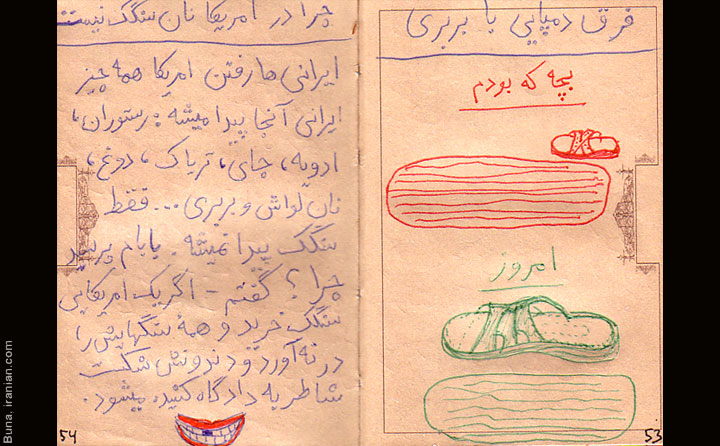 فرق دمپایی با بربری
بچه که بودم
امروز
53
چرا در امریکا نان سنگک نیست
ایرانی ها رفتن امریکا همه چیز
ایرانی آنجا پیدا میشه : رستوران،
ادویه، چای، تریاک، دوغ،
نان لواش و بربری... فقط
سنگک پیدا نمیشه. بابام پرسید
چرا؟ گفتم - اگر یک امریکایی
سنگک خرید و همهٔ سنگهایش را
در نه آورد و دندونش شکست
شاطر به دادگاه کشیده میشود.
54
Buna, iranian.com